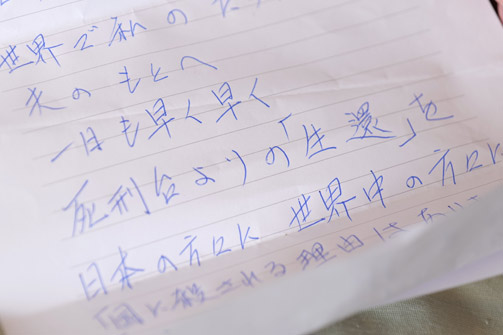 世界で私の
夫のもとへ
一日も早く早く
死刑台よりの「生還」を
日本の方々に 世界中の方々に
「国に殺される理由はない